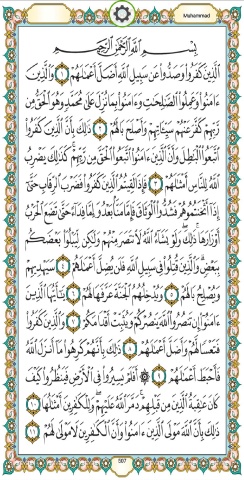 Muhammad
بِسْمِ ٱللَّهِ ٱلرَّحْمَٰنِ ٱلرَّحِيمِ
ٱلَّذِينَ كَفَرُوا۟ وَصَدُّوا۟ عَن سَبِيلِ ٱللَّهِ أَضَلَّ أَعْمَٰلَهُمْ ١ وَٱلَّذِينَ
ءَامَنُوا۟ وَعَمِلُوا۟ ٱلصَّٰلِحَٰتِ وَءَامَنُوا۟ بِمَا نُزِّلَ عَلَىٰ مُحَمَّدٍ وَهُوَ ٱلْحَقُّ مِن
رَّبِّهِمْ كَفَّرَ عَنْهُمْ سَيِّـَٔاتِهِمْ وَأَصْلَحَ بَالَهُمْ ٢ ذَٰلِكَ بِأَنَّ ٱلَّذِينَ كَفَرُوا۟
ٱتَّبَعُوا۟ ٱلْبَٰطِلَ وَأَنَّ ٱلَّذِينَ ءَامَنُوا۟ ٱتَّبَعُوا۟ ٱلْحَقَّ مِن رَّبِّهِمْ كَذَٰلِكَ يَضْرِبُ
ٱللَّهُ لِلنَّاسِ أَمْثَٰلَهُمْ ٣ فَإِذَا لَقِيتُمُ ٱلَّذِينَ كَفَرُوا۟ فَضَرْبَ ٱلرِّقَابِ حَتَّىٰٓ
إِذَآ أَثْخَنتُمُوهُمْ فَشُدُّوا۟ ٱلْوَثَاقَ فَإِمَّا مَنًّۢا بَعْدُ وَإِمَّا فِدَآءً حَتَّىٰ تَضَعَ ٱلْحَرْبُ
أَوْزَارَهَا ذَٰلِكَ وَلَوْ يَشَآءُ ٱللَّهُ لَٱنتَصَرَ مِنْهُمْ وَلَٰكِن لِّيَبْلُوَا۟ بَعْضَكُم
بِبَعْضٍ وَٱلَّذِينَ قُتِلُوا۟ فِى سَبِيلِ ٱللَّهِ فَلَن يُضِلَّ أَعْمَٰلَهُمْ ٤ سَيَهْدِيهِمْ
وَيُصْلِحُ بَالَهُمْ ٥ وَيُدْخِلُهُمُ ٱلْجَنَّةَ عَرَّفَهَا لَهُمْ ٦ يَٰٓأَيُّهَا ٱلَّذِينَ
ءَامَنُوٓا۟ إِن تَنصُرُوا۟ ٱللَّهَ يَنصُرْكُمْ وَيُثَبِّتْ أَقْدَامَكُمْ ٧ وَٱلَّذِينَ كَفَرُوا۟
فَتَعْسًا لَّهُمْ وَأَضَلَّ أَعْمَٰلَهُمْ ٨ ذَٰلِكَ بِأَنَّهُمْ كَرِهُوا۟ مَآ أَنزَلَ ٱللَّهُ
فَأَحْبَطَ أَعْمَٰلَهُمْ ٩ ۞ أَفَلَمْ يَسِيرُوا۟ فِى ٱلْأَرْضِ فَيَنظُرُوا۟ كَيْفَ
كَانَ عَٰقِبَةُ ٱلَّذِينَ مِن قَبْلِهِمْ دَمَّرَ ٱللَّهُ عَلَيْهِمْ وَلِلْكَٰفِرِينَ أَمْثَٰلُهَا ١٠
ذَٰلِكَ بِأَنَّ ٱللَّهَ مَوْلَى ٱلَّذِينَ ءَامَنُوا۟ وَأَنَّ ٱلْكَٰفِرِينَ لَا مَوْلَىٰ لَهُمْ ١١
507